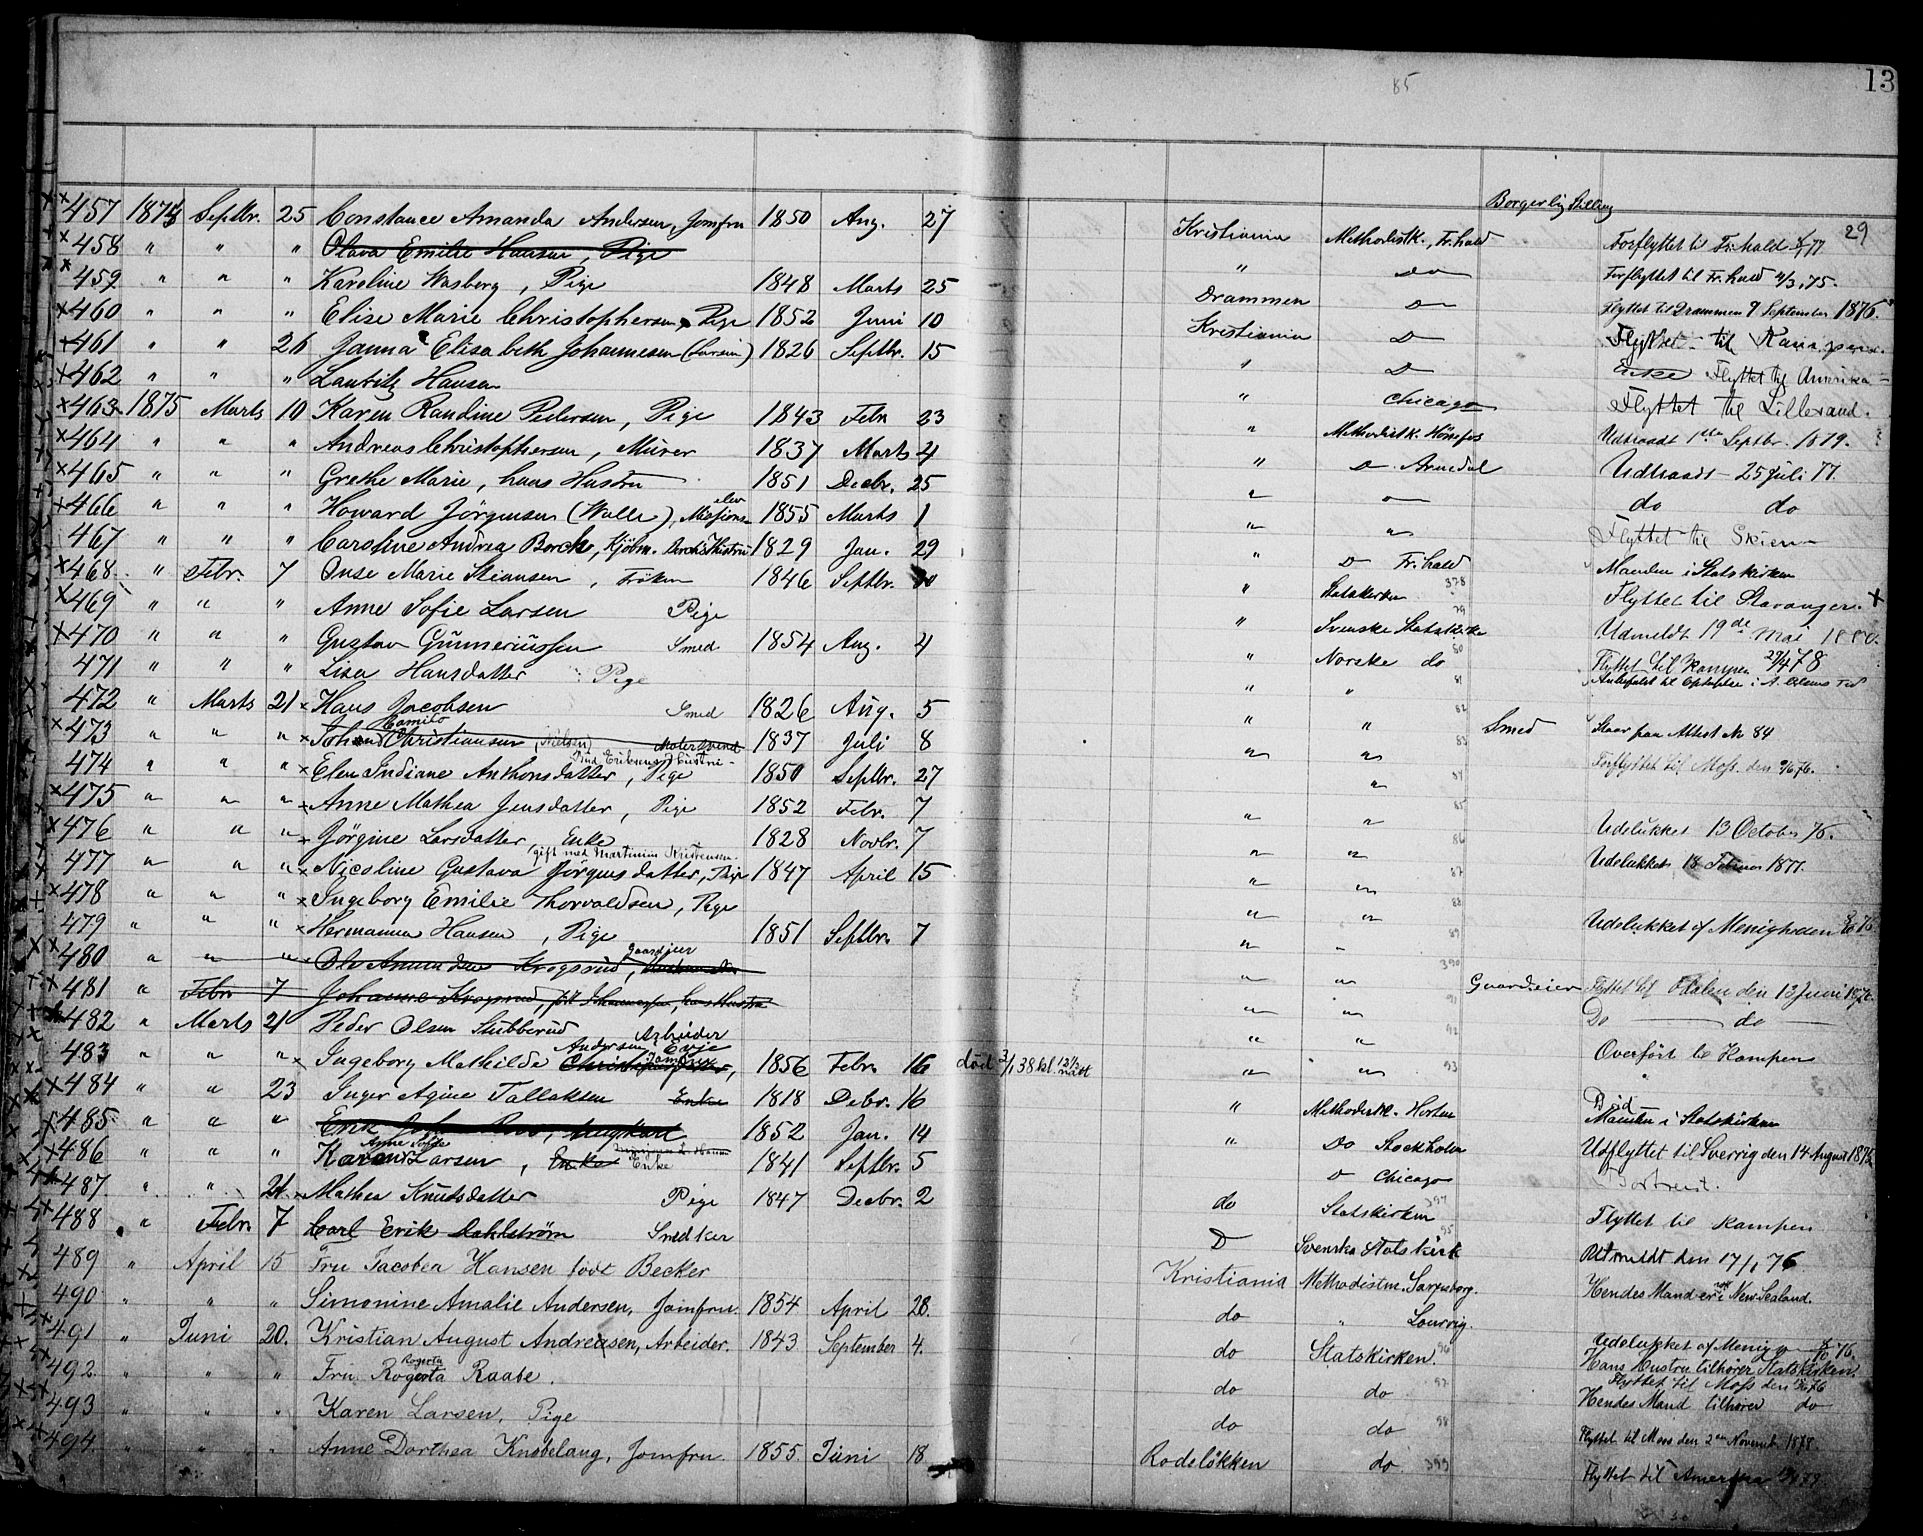 85
13
Borgerlig Stilling
29
457 1874 Septbr. 25 Constance Amanda Andersen, Jomfru 1850 Aug. 27 Kristiania Methodistk., Fr.hald Forflyttet til Fr.hald
458 " " " Olava Emilie Hansen, Pige " Do Forflyttet til Fr.hald 75.
459 " " " Karoline Wasberg, Pige 1848 Marts 25 Drammen D Flyttet til Drammen 9 September 1876.
460 " " " Elise Marie Christophersen, Pige 1852 Juni 10 Kristiania D Flyttet til
461 " " 26 Janna Elisabeth Johannesen (Larsen) 1826 Septbr. 15 " D Enke Flyttet til Amerika
462 " " " Lauritz Hansen " Chicago Flyttet til Lillesand.
463 1875 Marts 10 Karen Randine Petersen, Pige 1843 Febr 23 " Methodistk. Hønefos Udtraadt 1ste Septbr. 1879.
464 " " " Andreas Christophersen, Murer 1837 Marts 4 " D. Arendal Udtraadt 25 Juli 77.
465 " " " Grethe Marie, hans Hustru 1851 Decbr. 25 " do do
466 " " " Howard Jörgensen (Walle), Missions elev 1855 Marts 1 " " Flyttet til Skien
467 " " " Caroline Andrea Borch, Kjöbm. Borchs Hustru 1829 Jan. 29 " D Fr.hald Manden i Statskirken
468. " Febr. 7 Onse Marie Stiansen, Fröken 1846 Septbr. " Statskirken 378 Flyttet til Stavanger. +
469 " " " Anne Sofie Larsen Pige " Svenske Statskirke 79 Udmeldt 19de Mai 1880.
470 " " " Gustav Gunneriussen Smed 1854 Aug. 4 " Norske do 80 Flyttet til Kampen 29/4 78
471 " " " Lisa Hansdatter Pige " " 81
472 " Marts 21 Hans Jacobsen Smed 1826 Aug. 5 " " 82 Smed Staar paa Attest No 84
473 " " " Johan Christiansen (Nielsen) Malersvend 1837 Juli 8 " " 83 Forflyttet til Moss. den 9/6 76.
474 " " " Elen Indiane Anthonsdatter, Pige 1850 Septbr. 27 " 84
475 " " " Anne Mathea Jensdatter, Pige 1852 Febr. 7 " " 85 Udelukket 13 October 76.
476 " " " Jörgine Larsdatter Enke 1828 Novbr. 7 " " 86 Udelukket 18 Februar 1877.
gift med Martinius Kristensen
477 " " " Nicoline Gustava Jörgensdatter, Pige 1847 April 15 " " 87
478 " " " Ingeborg Emilie Thorvaldsen, Pige " " 88 Udelukket af Menigheden
479 " " " Hermanna Hansen, Pige 1851 Septbr. 7 " " 89
Gaardejer
480 " " " Ole Amundsen Krogsrud, " " 390 Gaardeier Flyttet til den 13 Juni 1876.
481 " Febr 7 Johanne Krogsrud, född Johannessen, hans Hustru " " 91 Do do
482 " Marts 21 Peder Olsen Stubberud Arbeider " " 92 Overfört til Kampen
Andersen
483 " " " Ingeborg Mathilde 1856 Febr. 16 död 2/1 38 kl. 12½ natt " " 93
484 " " 23 Inger Agine Tallaksen Enke 1818 Decbr. 16 " Methodistk. Horten Manden i Statskirken
485 " " " 1852 Jan. 14 " Do Stockholm Udflyttet til Sverrig den 14 August 1876
Anne Sofie
486 " " " Karen Larsen, Enke 1841 Septbr. 5 D Chicago Bortreist.
487 " " 21. Mathea Knudsdatter Pige 1847 Decbr. 2 do Statskirken Flyttet til Kampen
488 " Febr. 7 Carl Erik Dahlström Snedker D Svenska Statskirk 95 Utmeldt den 17/1 76
489 " April 15 Fru Jacobea Hansen född Becker Kristiania Methodistm. Sarpsborg. Hendes Mand er i New Sealand.
490 " " " Simonine Amalie Andersen, Jomfru 1854 April 28. do " Laurvig.
491 " Juni 20. Kristian August Andreasen, Arbeider. 1843 September 4. do Statskirken. 96 Udelukket af Menig 76.
Hans Hustru tilhører Statskirken.
Rogerta
492. " " " Fru Rogerta Raabe. do do 97 Flyttet til Moss den
Hendes Mand tilhører do
493 " " " Karen Larsen, Pige do do 98 Flyttet til Moss den 2den Novemb. 1878.
494 " " " Anne Dorthea Knobelaug, Jomfru. 1855. Juni 18. Rodelökken do 399 Flyttet til Amerika